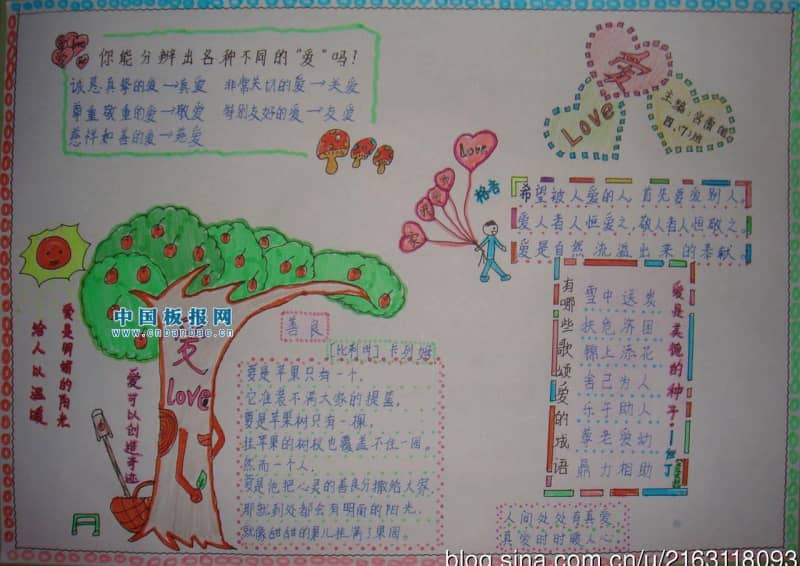 你能分辨出各种不同的“爱”吗?
诚恳真挚的爱→真爱 非常关切的爱→关爱
尊重敬重的爱→敬爱 特别友好的爱→友爱
慈祥和善的爱→慈爱
爱
Love
主编:
四.(7)班
Love
格言
希望被人爱的人,首先要爱别人,
爱人者人恒爱之,敬人者人恒敬之。
爱是自然流溢出来的奉献。
有哪些歌颂爱的成语
雪中送炭
扶危济困
锦上添花
舍己为人
乐于助人
尊老爱幼
鼎力相助
爱是美德的种子。
爱是明媚的阳光
给人以温暖
爱可以创造奇迹
爱
love
中国板报网
www.cnbanbao.cn
善良
[比利时] 卡列姆
要是苹果只有一个,
它准装不满大家的提篮。
要是苹果树只有一棵,
挂苹果的树杈也覆盖不住一园。
然而一个人,
要是他把心灵的善良分撒给大家
那就到处都会有明丽的阳光,
就像甜甜的果儿挂满了果园。
人间处处有真爱
真爱时时暖人心。
blog.sina.com.cn/u/2163118093